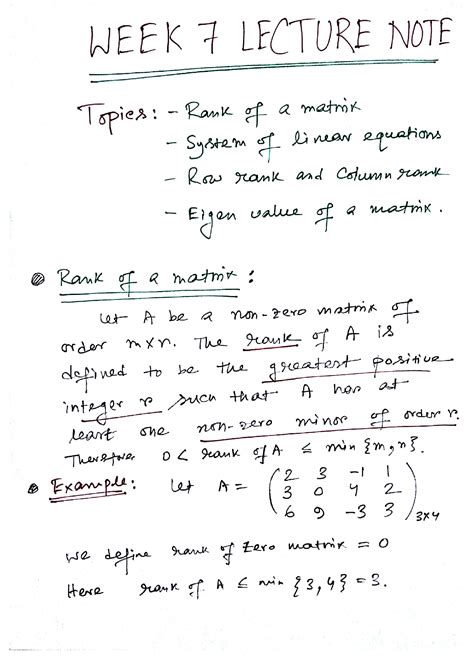 WEEK 7 LECTURE NOTE
Topics: - Rank of a matrix
- System of linear equations
- Row rank and Column rank
- Eigen value of a matrix.
Rank of a matrix :
Let A be a non-zero matrix of
order m×n. The rank of A is
defined to be the greatest positive
integer r such that A has at
least one non-zero minor of order r.
Therefore 0 < rank of A ≤ min {m, n}.
Example: Let A = ( 2 3 -1 1
3 0 4 2
6 9 -3 3 ) 3×4
We define rank of zero matrix = 0
Here rank of A ≤ min {3, 4} = 3.